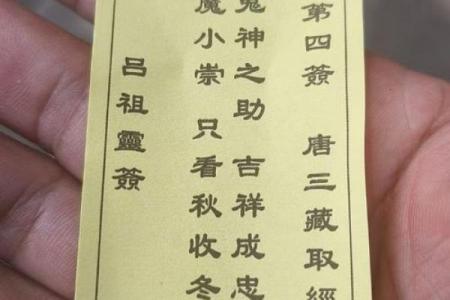 第四簽 唐三藏取經
鬼神之助 吉祥成忠
魔小崇 只看秋收冬
呂祖靈簽